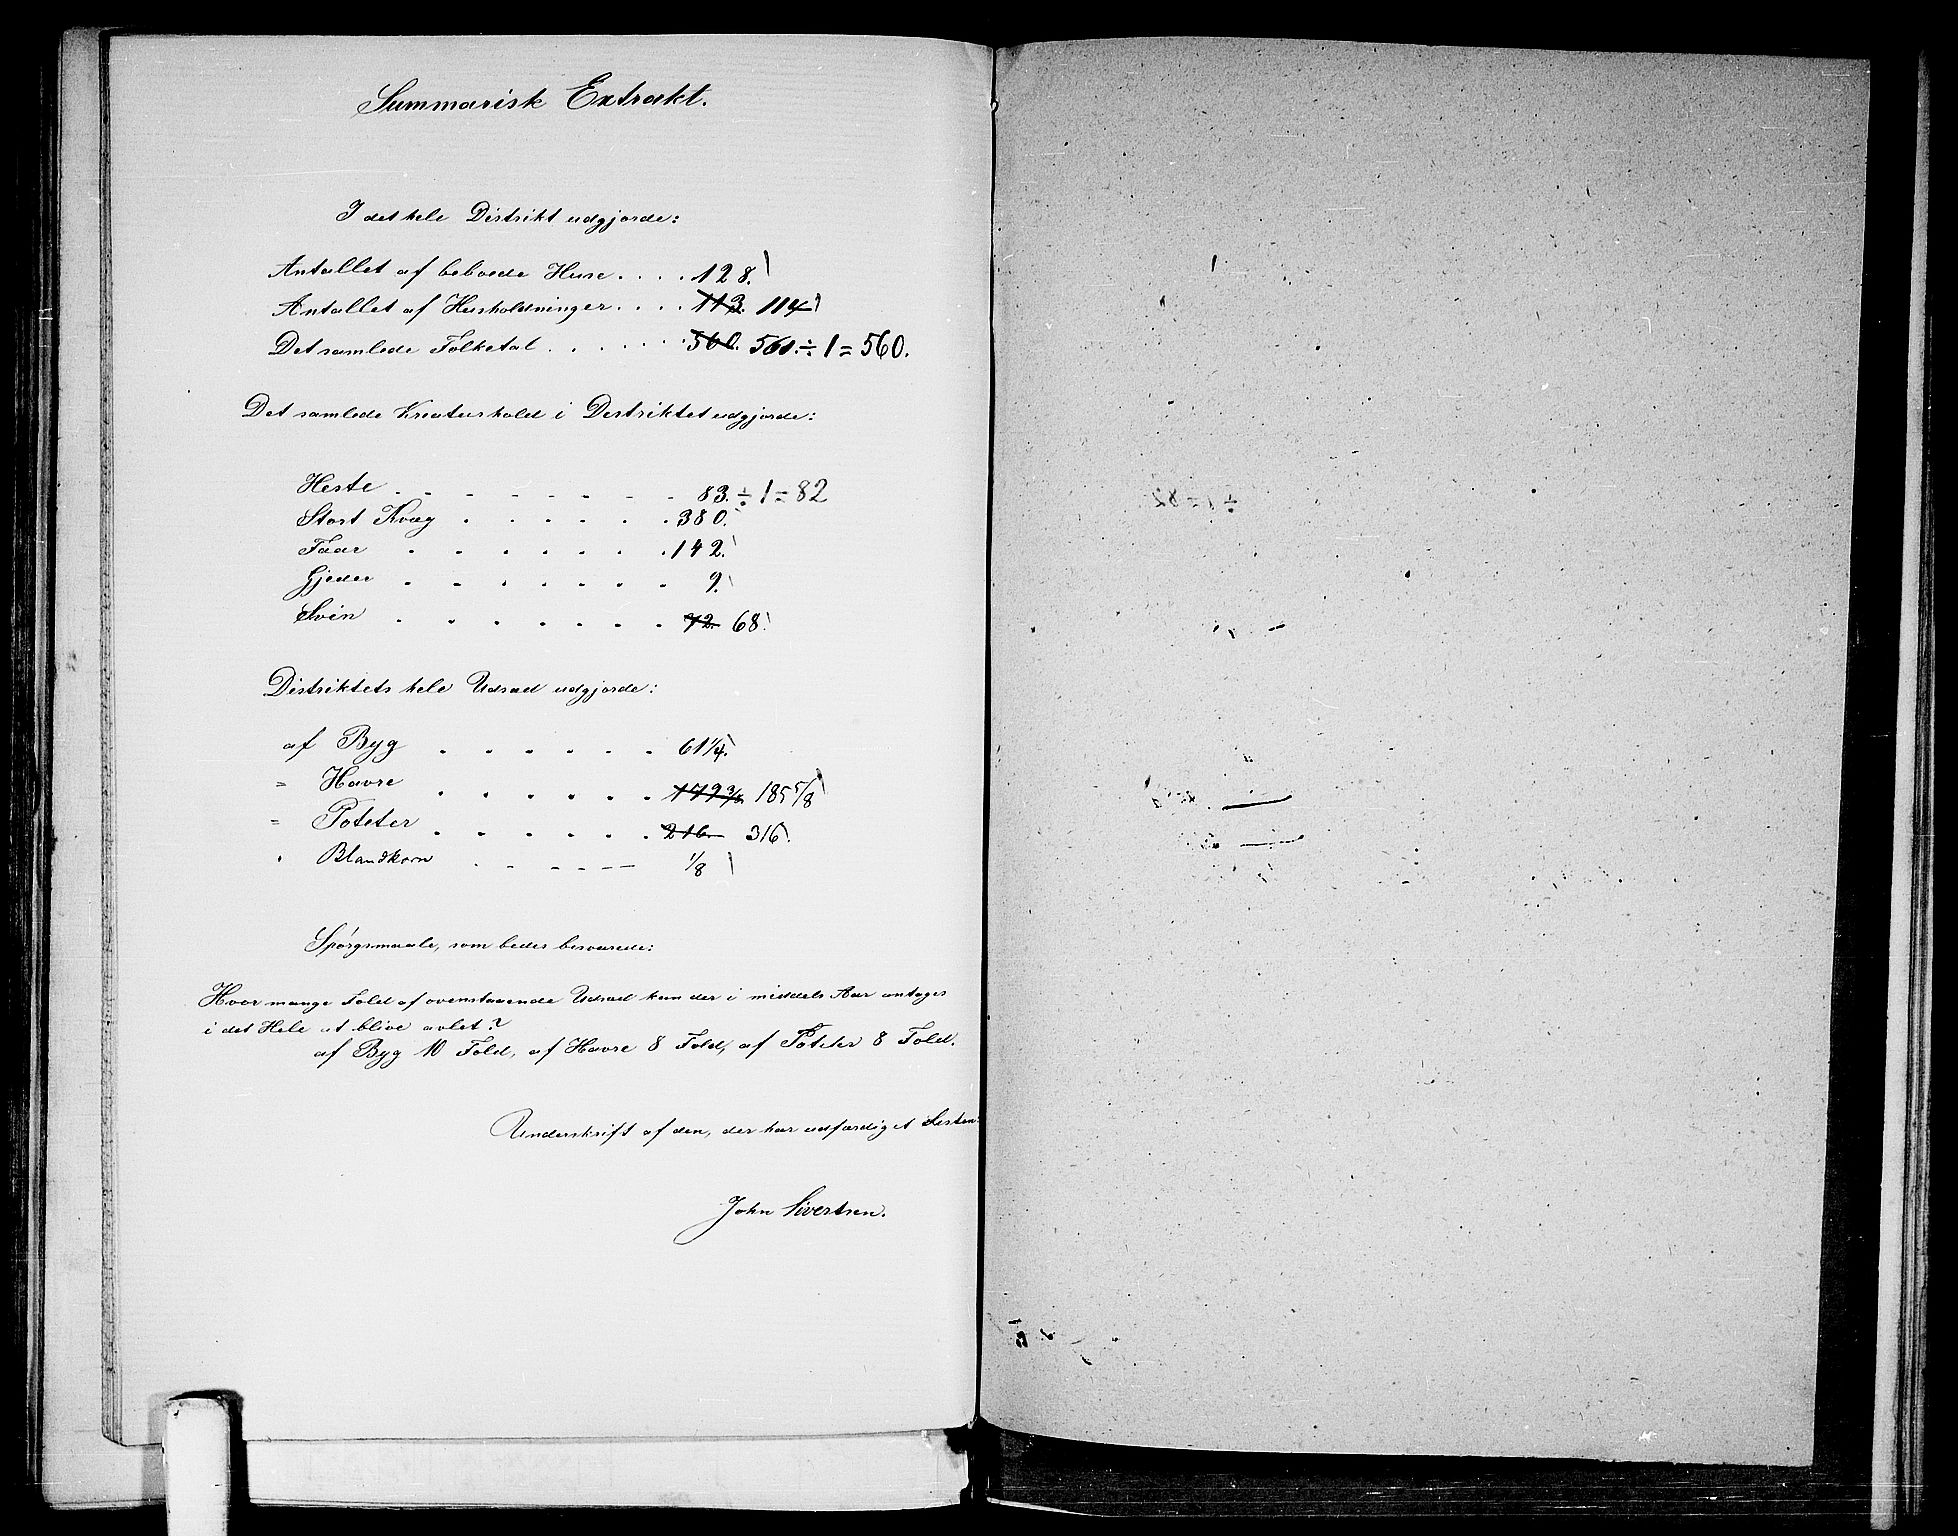 Summarisk Extrakt.
I det hele Distrikt udgjorde:
Antallet af beboede Huse . . . . 128.
Antallet af Husholdninger . . . . 113. 114
Det samlede Folketal . . . . . . . 560. 561. ÷ 1 = 560.
Det samlede Kreaturhold i Distriktet udgjorde:
Heste . . . . . . . 83. ÷ 1 = 82
Stort Kvæg . . . . . . 380.
Faar . . . . . . . 142.
Gjeder . . . . . . . 9.
Svin . . . . . . . 72. 68.
Distriktets hele Udsæd udgjorde:
af Byg . . . . . . 61 1/4.
" Havre . . . . . . 179 3/8 185 5/8
" Poteter . . . . . . 216. 316.
" Blandkorn . . - - - - 1/8
Spørgsmaale, som bedes besvarede:
Hvor mange Fold af ovenstaaende Udsæd kan der i middels Aar antages
i det Hele at blive avlet?
af Byg 10 Fold, af Havre 8 Fold, af Poteter 8 Fold.
Underskrift af den, der har udfærdiget Listen:
John Sivertsen.